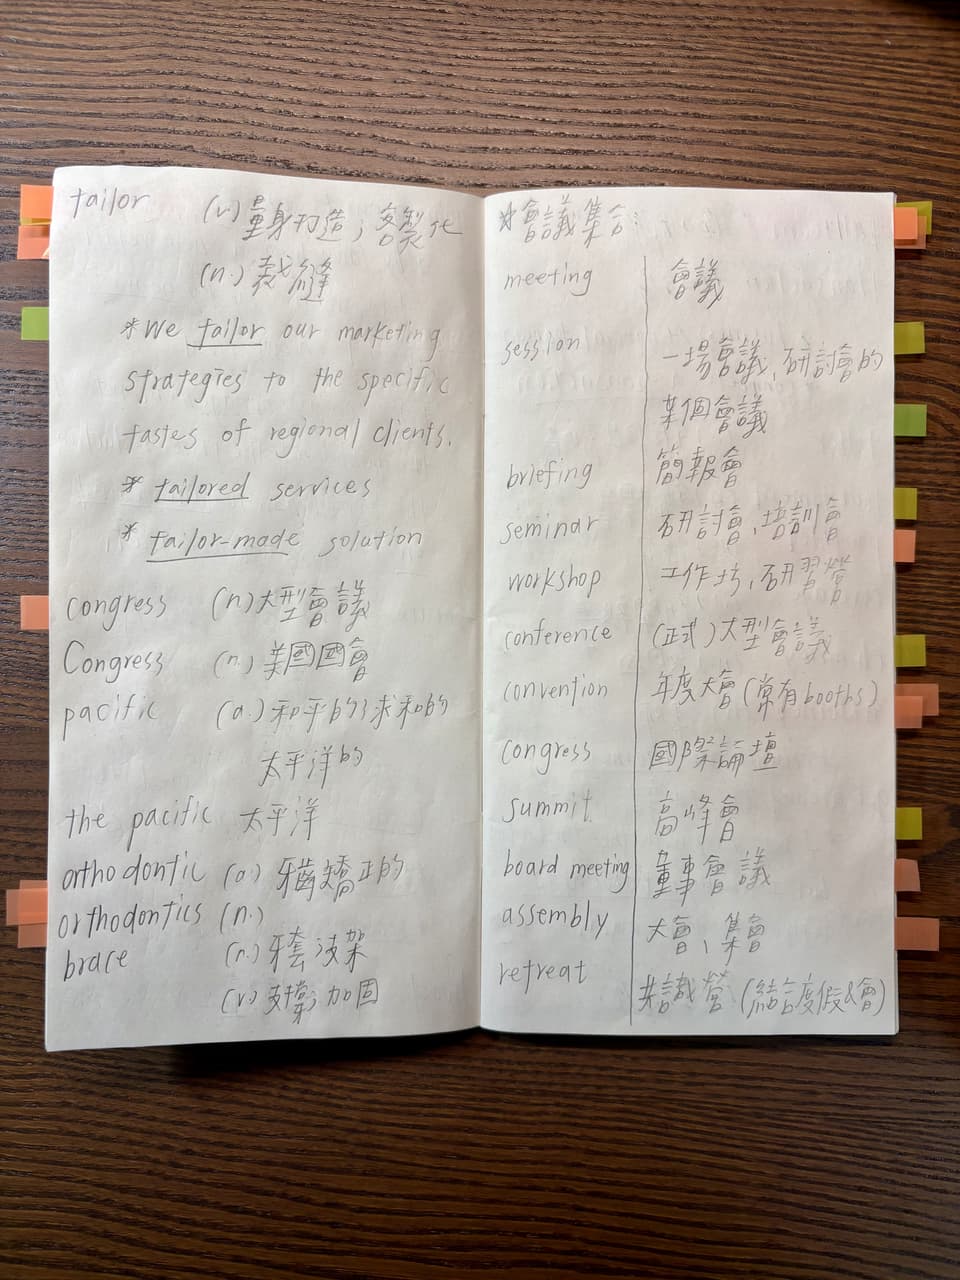 tailor (v.) 量身打造；客製化
(n.) 裁縫
*We tailor our marketing
strategies to the specific
tastes of regional clients.
* tailored services
* tailor-made solution
congress (n.) 大型會議
Congress (n.) 美國國會
pacific (a.) 和平的；求和的
太平洋的
the pacific 太平洋
orthodontic (a.) 牙齒矯正的
orthodontics (n.)
brace (n.) 牙套；支架
(v.) 支撐；加固
*會議集合：
meeting 會議
session 一場會議、研討會的
某個會議
briefing 簡報會
seminar 研討會、培訓會
workshop 工作坊、研習營
conference (正式)大型會議
convention 年度大會(常有booths)
congress 國際論壇
summit 高峰會
board meeting 董事會議
assembly 大會、集會
retreat 共識營 (結合度假&會)